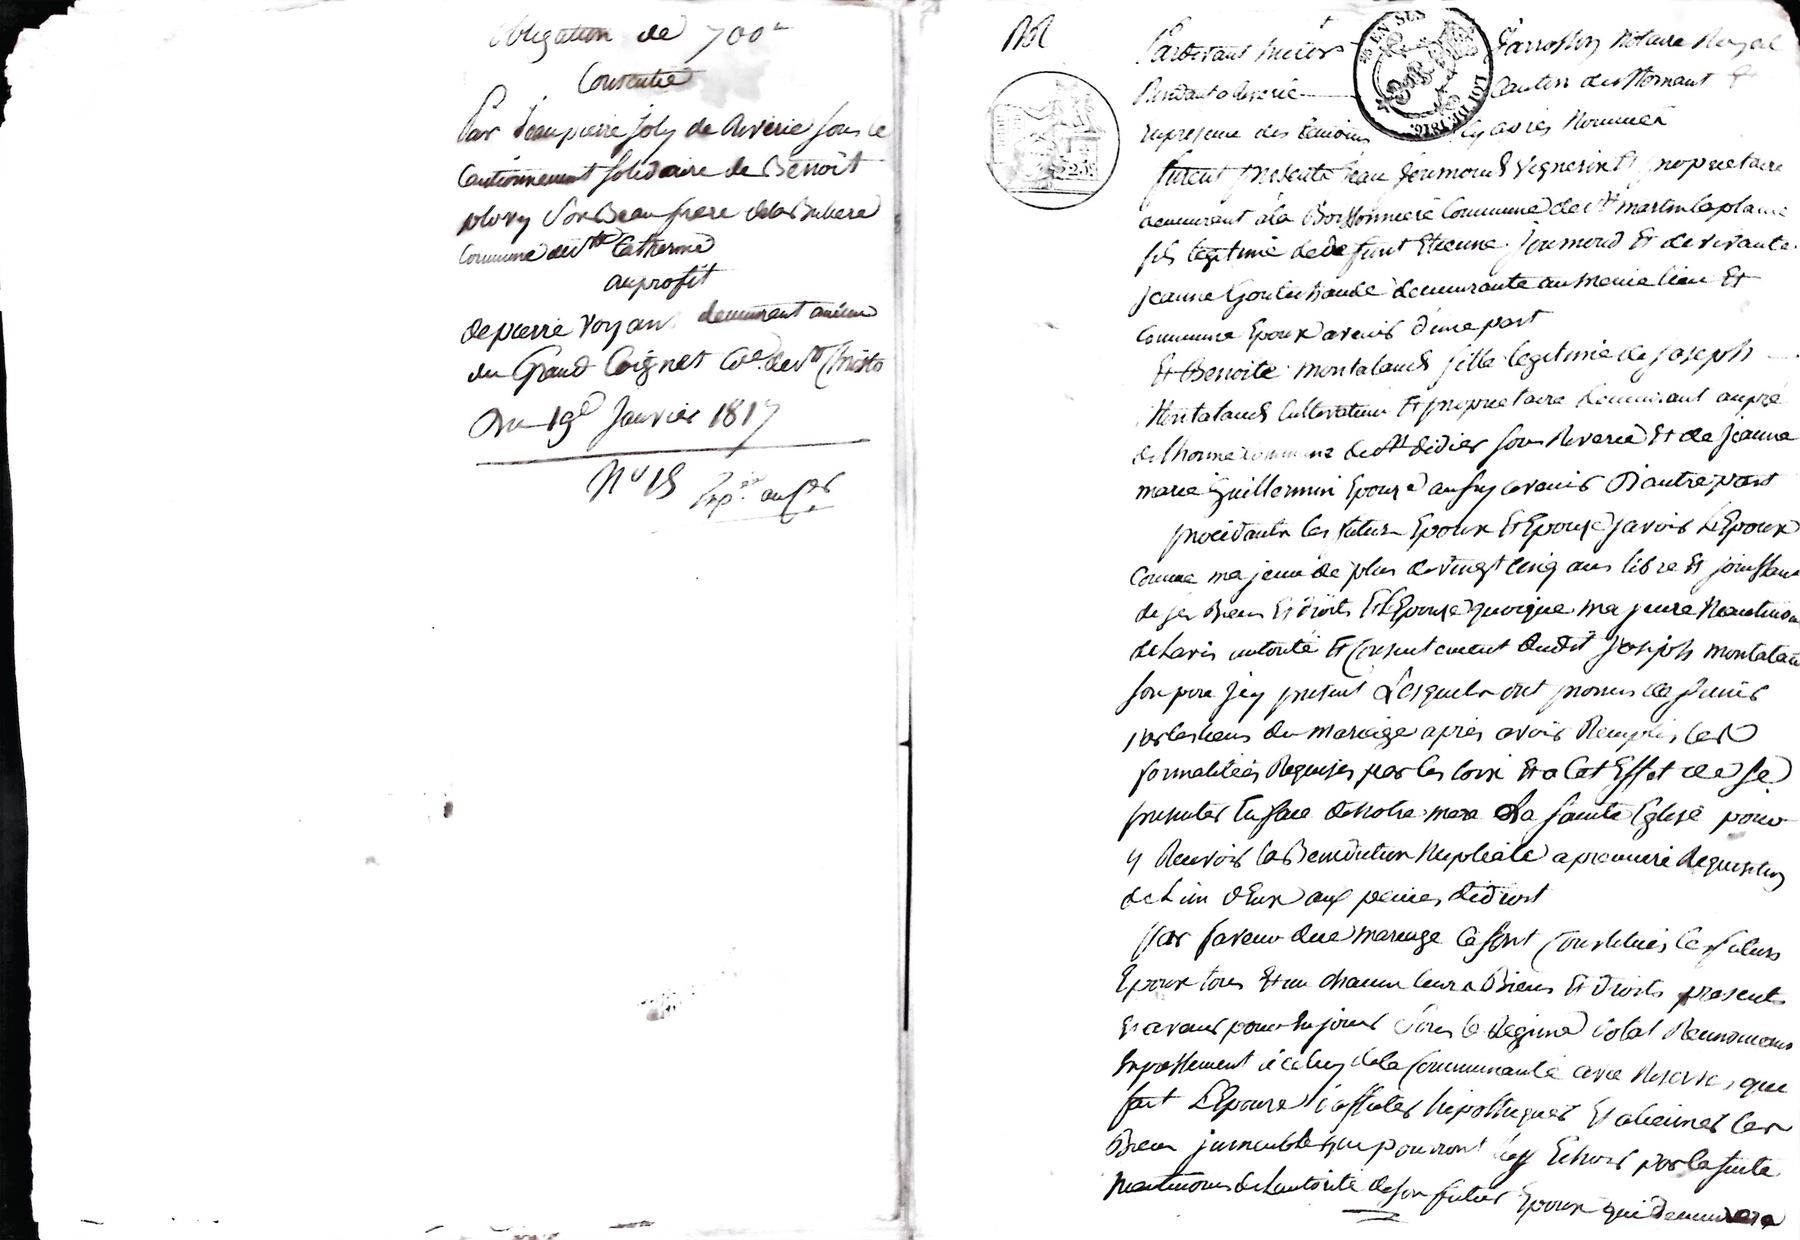 Obligation de 700#
Consentie
Par Jean pierre Joly de Riverie sous le
Cautionnement solidaire de Benoit
son Beau frere de la
Commune de Ste Catherine
au profit
de pierre Voyant demeurant au lieu
du Grand Coignet Cne de St Christo
Du 19e Janvier 1817
No 15
M
Pardevant notaire Royal
Residant a Riverie Canton de Mornant &
en presence des temoins cy après Nommés
furent presents Jean Joumoud Vigneron Et proprietaire
demeurant à la Boissonniere Commune de St martin la plaine
fils legitime de defunt Etienne Joumoud Et de vivante
jeanne demeurante au meme lieu Et
Commune Epoux avenir d'une part
Et Benoite montaland fille legitime de Joseph
Montaland Cultivateur Et proprietaire demeurant au pré
de lhorme commune de St didier sous Riverie Et de Jeanne
marie Guillermin Epouse aussy avenir D'autre part
procedants les futurs Epoux Et Epouse savoir L'Epoux
comme majeur de plus de vingt cinq ans libre Et jouissant
de ses Biens Et droits Et L'Epouse quoique majeure Neantmoins
de Lavis autorité Et Consentement dudit Joseph montaland
son pere Icy present Lesquels ont promis de s'unir
par les liens du mariage après avoir Remplis les
formalitées Requises par les loix Et a Cet Effet de se
presenter En face de notre mere La Sainte Eglise pour
y Recevoir la Benediction Nuptiale a premiere Requisition
de L'un d'Eux aux peines de droit
Par faveur du mariage Ce sont Constitués les futurs
Epoux tous Et un chacun leurs Biens Et droits presents
Et avenir pour En jouir Sous le Regime dotal Renoncent
Expressement à celuy de la Communauté avec Reserve que
fait L'Epouse d'affecter hipothequer Et aliener les
Biens immeubles qui pourront luy Echoir par la suite
Neantmoins de Lautorité de son futur Epoux qui demeurera